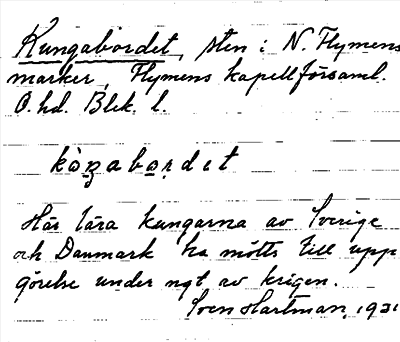 Kungabordet, sten i N. Flymens
marker, Flymens kapellförsaml.
Ö. hd. Blek. l.
kòŋabordet
Här lära kungarna av Sverige
och Danmark ha mötts till upp
görelse under ngt av krigen.
Sven Hartman, 1931